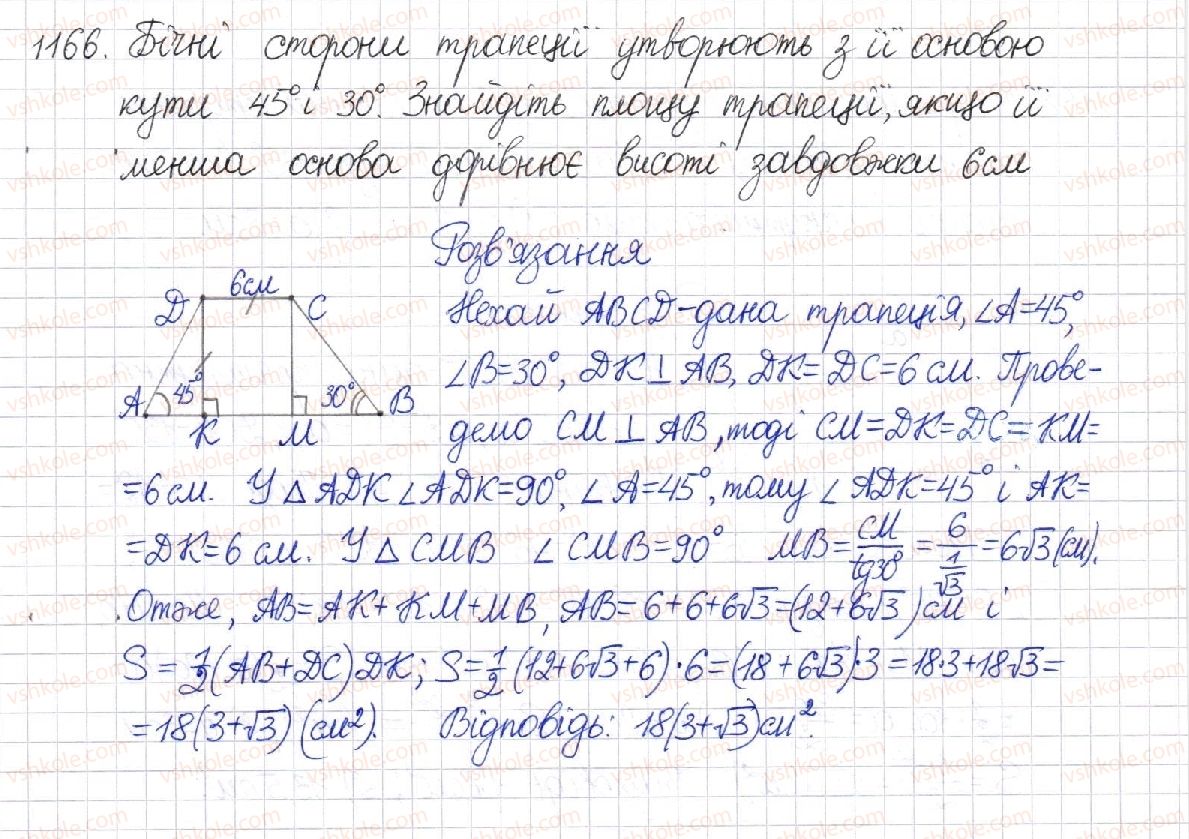 1166. Бічні сторони трапеції утворюють з її основою
кути 45° і 30°. Знайдіть площу трапеції, якщо її
менша основа дорівнює висоті завдовжки 6см
Розв'язання
6см
D C
A 45° 30° B
K M
Нехай ABCD-дана трапеція, ∠A=45°,
∠B=30°, DK⊥AB, DK=DC=6 см. Прове-
демо CM⊥AB, тоді CM=DK=DC=KM=
=6 см. У △ADK ∠ADK=90°, ∠A=45°, тому ∠ADK=45° і AK=
=DK=6 см. У △CMB ∠CMB=90° MB=CM/tg30°=6/(1/√3)=6√3(см).
Отже, AB=AK+KM+MB, AB=6+6+6√3=(12+6√3)см і
S=1/2(AB+DC)DK; S=1/2(12+6√3+6)·6=(18+6√3)·3=18·3+18√3=
=18(3+√3)(см²). Відповідь: 18(3+√3)см².
vshkole.com